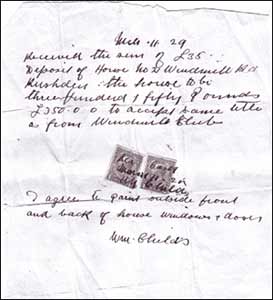 Mch 11. 29
Received the sum of £35.
Deposit of House No 2 Windmill Rd
Rushden: the house to be
three hundred & fifty Pounds
£350-0-0 to accept same title
as from Windmill Club
Wm Childs
I agree to paint outside front
and back of house windows & doors
Wm. Childs